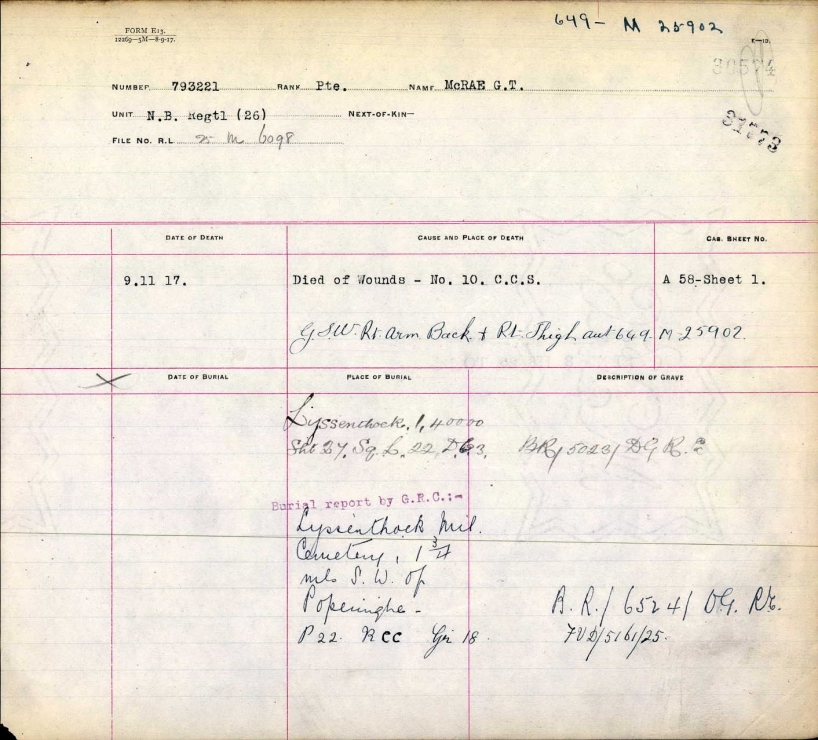 FORM E13.
12269—5M—8-9-17.
649- M 25902
E—13.
30574
31773
NUMBER 793221 RANK Pte. NAME McRAE G.T.
UNIT N.B. Regtl (26) NEXT-OF-KIN—
FILE NO. R.L. 25 M 6098
DATE OF DEATH CAUSE AND PLACE OF DEATH CAS. SHEET NO.
9.11 17. Died of Wounds - No. 10. C.C.S. A 58-Sheet 1.
G.S.W. Rt Arm Back + Rt Thigh aut 649-M-25902.
DATE OF BURIAL PLACE OF BURIAL DESCRIPTION OF GRAVE
Lyssenthock. 1, 40000
Sht 27. Sq. L. 22 D.6.3. BR/5023/ DG R.
Burial report by G.R.C.:-
Lyssenthock Mil.
Cemetery, 1 3/4
mls S. W. of
Poperinghe -
P 22. R CC Gr 18. B.R./6524/ DG. RE.
7VD/5161/25.